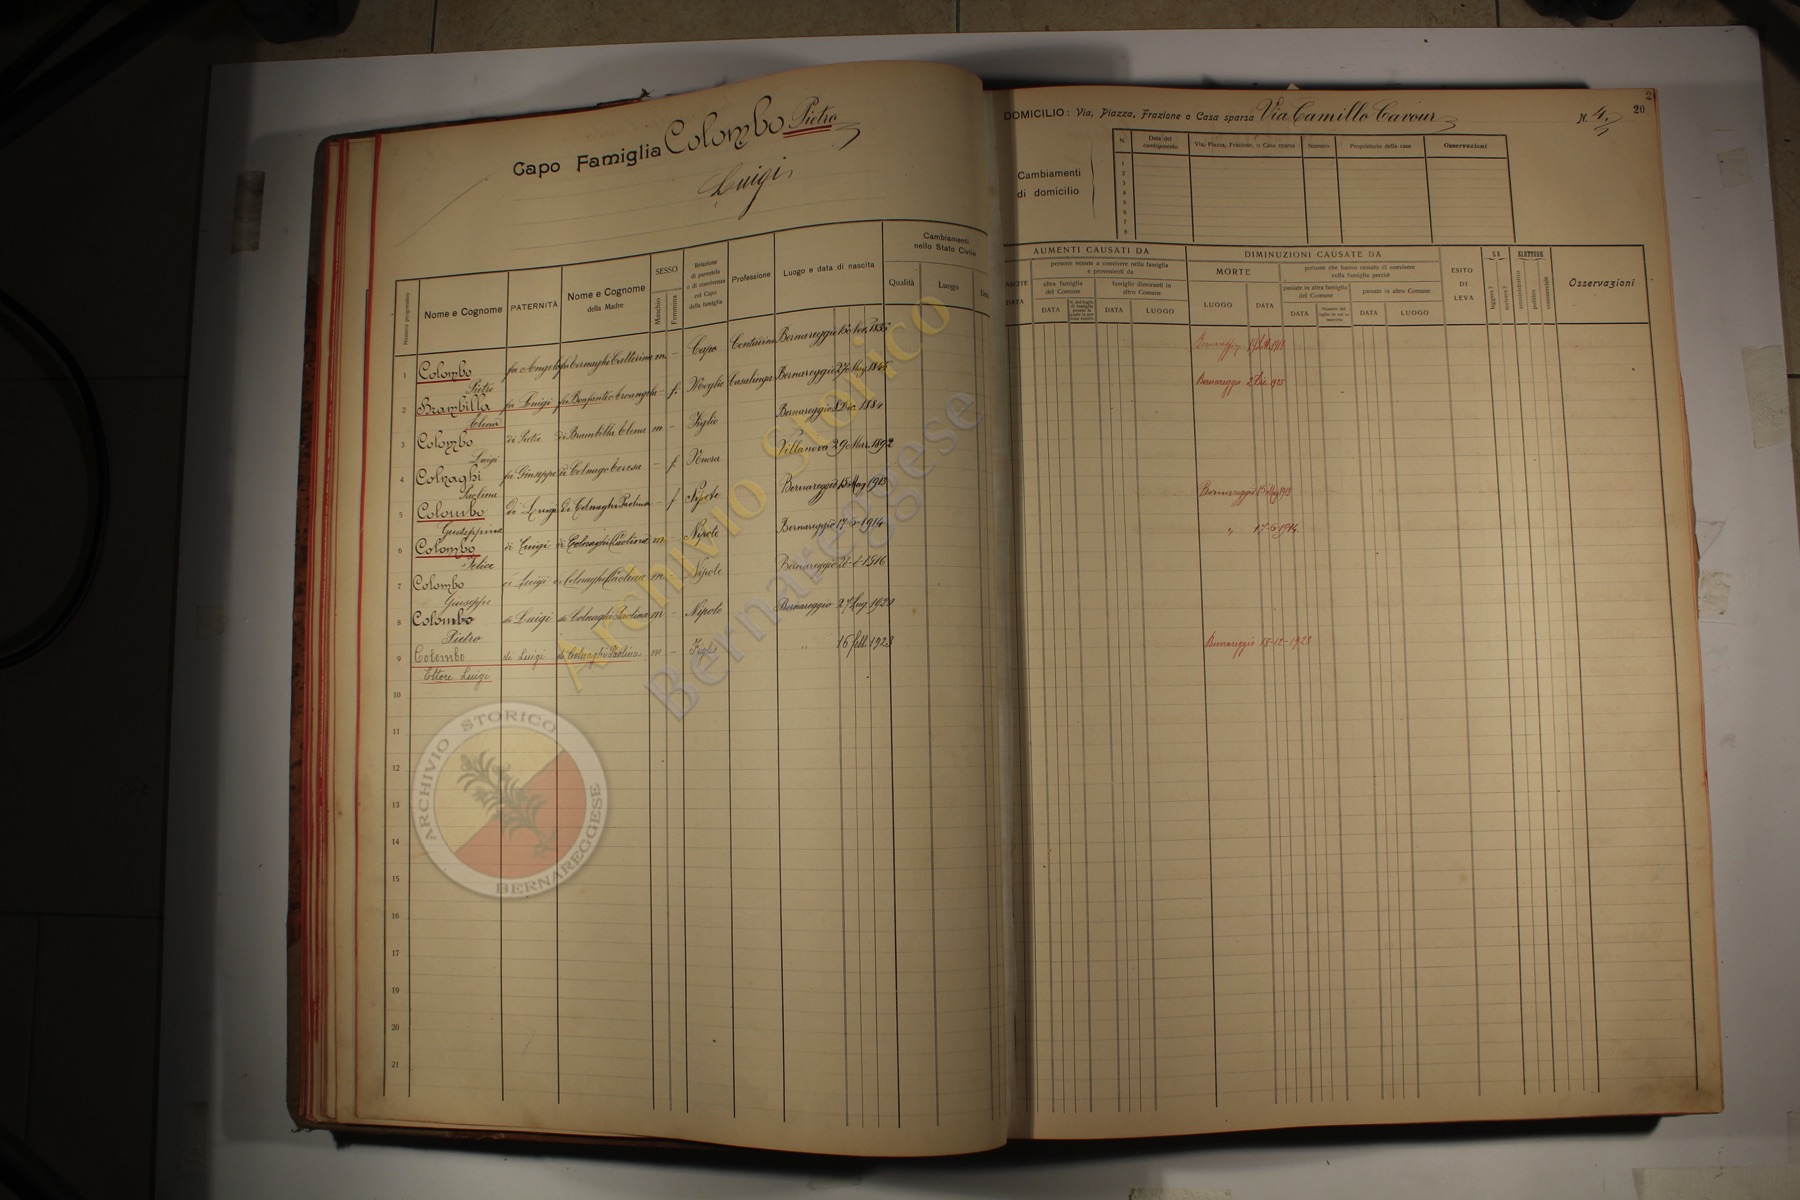 Capo Famiglia Colombo Pietro
Luigi
Numero progressivo
Nome e Cognome
PATERNITÀ
Nome e Cognome
della Madre
SESSO
Maschio
Femmina
Relazione
di parentela
o di convivenza
col Capo
della famiglia
Professione
Luogo e data di nascita
Cambiamenti
nello Stato Civile
Qualità
Luogo
1 Colombo fu Angelo m - Capo Bernareggio
Pietro
2 Brambilla fu Luigi fu Bonfanti Arcangela - f. Moglie Casalinga Bernareggio
Elena
3 Colombo di Pietro di Brambilla Elena m - Figlio Bernareggio 8 Dic. 1884
Luigi
4 Colnaghi fu Giuseppe di Colnago Teresa - f. Nuora Villanova 29 Mar. 1892
Paolina
5 Colombo di Luigi di Colnaghi Paolina - f Nipote Bernareggio 15 Mag 1913
Giuseppina
6 Colombo di Luigi di Colnaghi Paolina m - Nipote Bernareggio 17-6-1914
Felice
7 Colombo di Luigi di Colnaghi Paolina m - Nipote Bernareggio 1916
Giuseppe
8 Colombo di Luigi di Colnaghi Paolina m - Nipote Bernareggio 27 Lug. 1920
Pietro
9 Colombo di Luigi di Colnaghi Paolina m - Figlio " 16 febb. 1923
Ettore Luigi
10
11
12
13
14
15
16
17
18
19
20
21
DOMICILIO: Via, Piazza, Frazione o Casa sparsa Via Camillo Cavour N. 4
20
Cambiamenti
di domicilio
N.
Data del
cambiamento
Via, Piazza, Frazione, o Casa sparsa
Numero
Proprietario della casa
Osservazioni
1
2
3
4
5
6
7
8
AUMENTI CAUSATI DA
persone venute a convivere nella famiglia
e provenienti da
altra famiglia
del Comune
famiglie dimoranti in
altro Comune
DATA
DATA
DATA
LUOGO
DIMINUZIONI CAUSATE DA
MORTE
persone che hanno cessato di convivere
colla famiglia perchè
passate in altra famiglia
del Comune
passate in altro Comune
LUOGO
DATA
DATA
DATA
LUOGO
ESITO
DI
LEVA
SA
leggere?
scrivere?
ELETTORE
amministrativo
politico
commerciale
Osservazioni
Bernareggio 2 Dic. 1925
Bernareggio 15 Mag 1913
" 17-6-1914
Bernareggio 15-12-1923
Archivio Storico
Bernareggese
ARCHIVIO STORICO
BERNAREGGESE